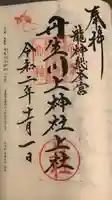 奉拝
龍神総本宮
丹生川上神社上社
令和 年十一月一日